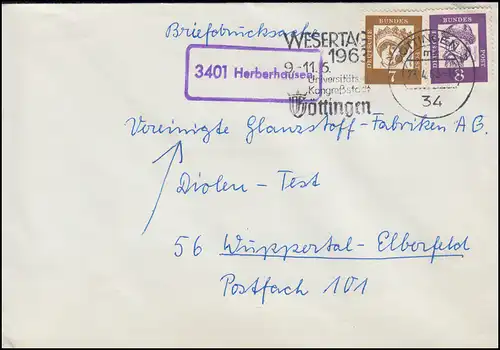 Briefdrucksache
3401 Herberhausen
WESERTAG
1963
9.-11.6.
Universitäts- u.
Kongreßstadt
Göttingen
DEUTSCHE BUNDES POST
7
DEUTSCHE BUNDES POST
8
34
Vereinigte Glanzstoff-Fabriken AG.
Diolen-Test
56 Wuppertal-Elberfeld
Postfach 101